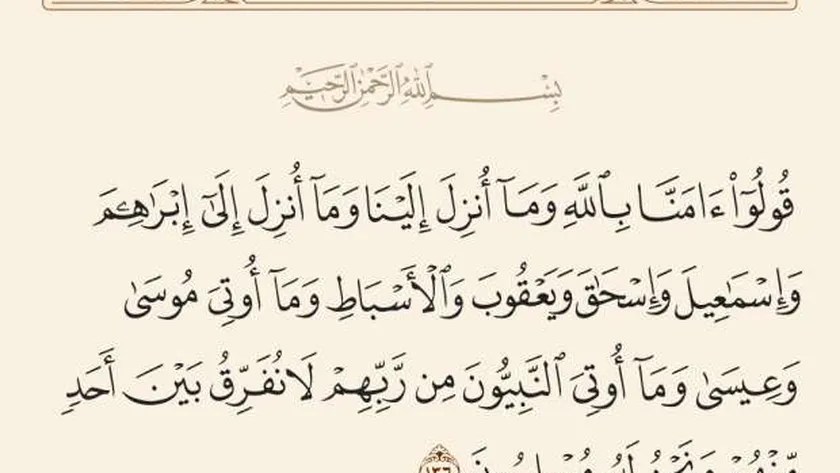 بِسْمِ اللَّهِ الرَّحْمَٰنِ الرَّحِيمِ
قُولُوٓا۟ ءَامَنَّا بِٱللَّهِ وَمَآ أُنزِلَ إِلَيْنَا وَمَآ أُنزِلَ إِلَىٰٓ إِبْرَٰهِـۧمَ
وَإِسْمَٰعِيلَ وَإِسْحَٰقَ وَيَعْقُوبَ وَٱلْأَسْبَاطِ وَمَآ أُوتِىَ مُوسَىٰ
وَعِيسَىٰ وَمَآ أُوتِىَ ٱلنَّبِيُّونَ مِن رَّبِّهِمْ لَا نُفَرِّقُ بَيْنَ أَحَدٍ
مِّنْهُمْ وَنَحْنُ لَهُۥ مُسْلِمُونَ ١٣٦